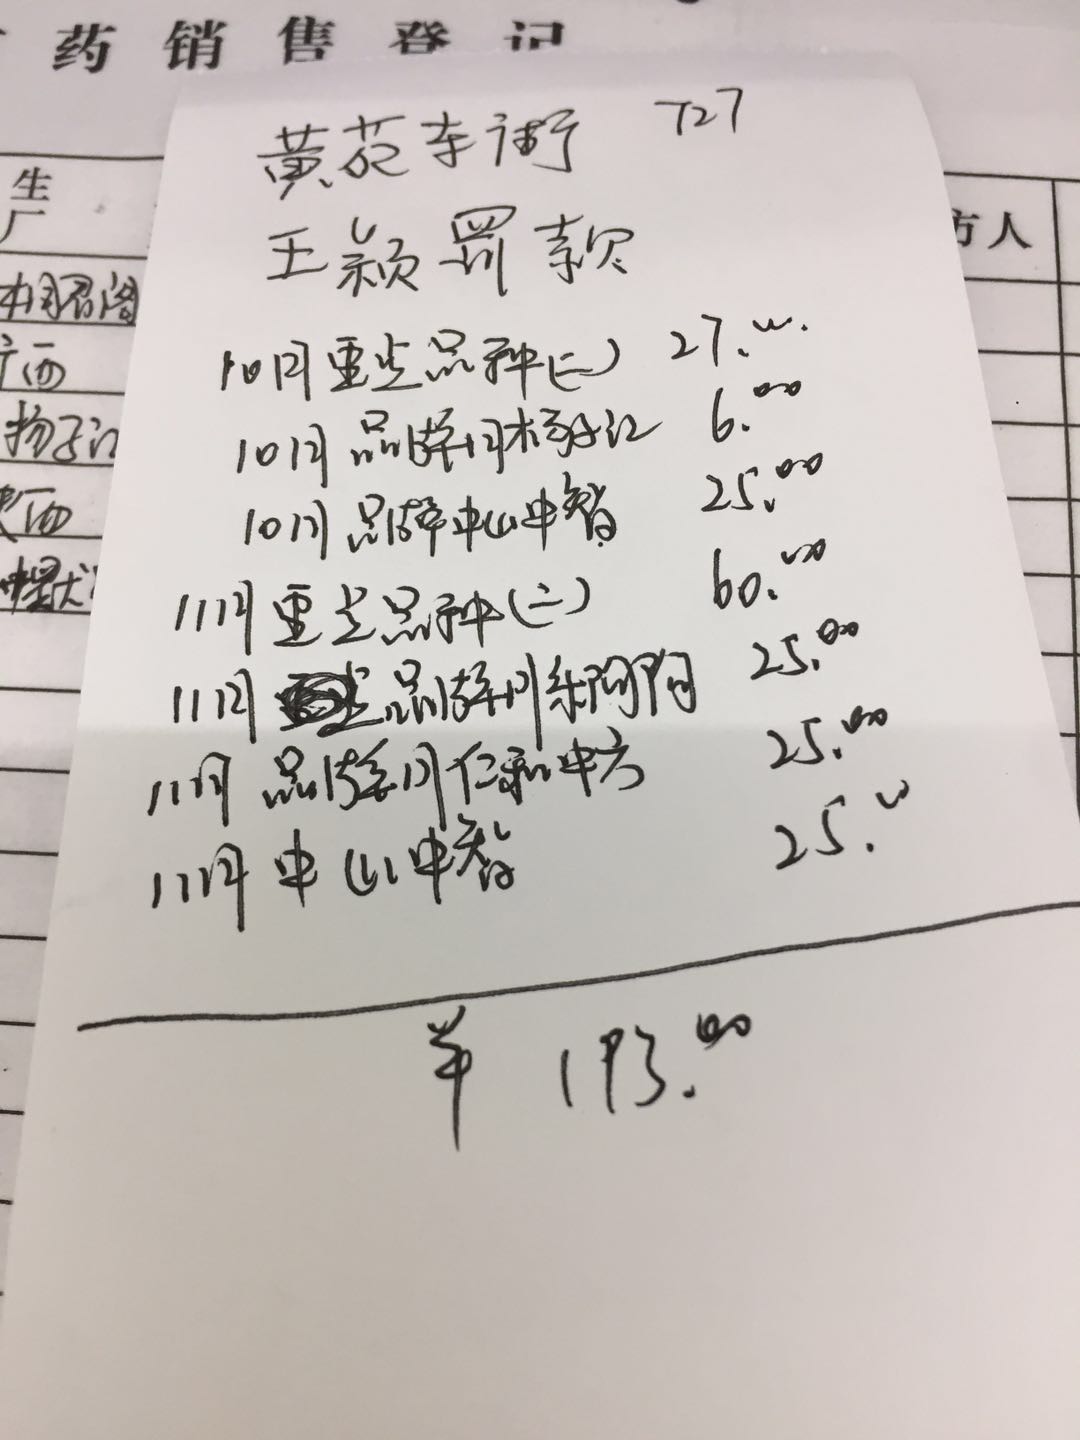 药销售登记
黄苑东街 727
王颖罚款
生
厂
方人
桐君阁
广西
扬子江
10月重点品种(二) 27.00
10月品牌月扬子江 6.00
10月品牌中山中智 25.00
11月重点品种(二) 60.00
11月品牌月东阿阿 25.00
11月品牌月仁和中方 25.00
11月中山中智 25.00
¥ 193.00